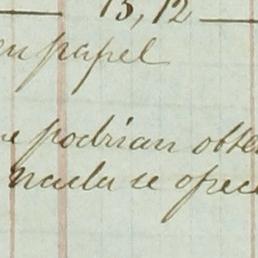 15,12
en papel
e podrian obte
nada se ofrec